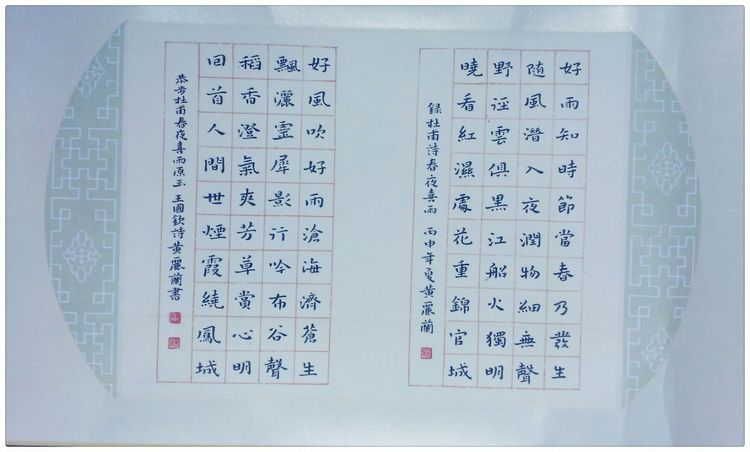 好雨知時節當春乃發生
随風潜入夜潤物細無聲
野迳雲俱黑江船火獨明
曉看紅濕處花重錦官城
録杜甫詩春夜喜雨 丙申年夏黄麗蘭
好風吹好雨滄海濟蒼生
飄灑靈犀影行吟布谷聲
稻香澄氣爽芳草賞心明
回首人間世煙霞繞鳳城
恭步杜甫春夜喜雨原玉 王國欽詩黄麗蘭書